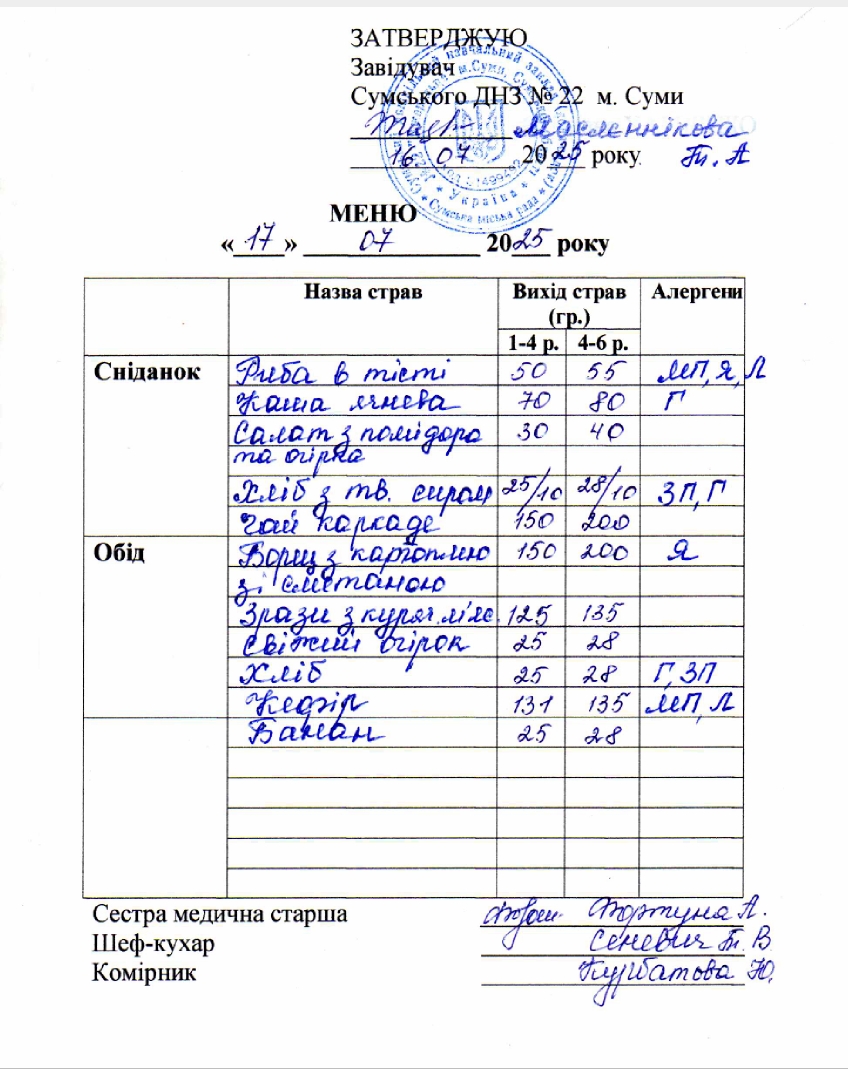 ЗАТВЕРДЖУЮ
Завідувач
Сумського ДНЗ № 22 м. Суми
Масленнікова
16. 07 2025 року Т. А
МЕНЮ
«17» 07 2025 року
Назва страв Вихід страв (гр.) Алергени
1-4 р. 4-6 р.
Сніданок Риба в тісті 50 55 МП, Я, Л
Каша ячнева 70 80 Г
Салат з помідора 30 40
та огірка
Хліб з тв. сиром 25/10 28/10 ЗП, Г
Чай каркаде 150 200
Обід Борщ з картоплею 150 200 Я
зі сметаною
Зрази з куряч. м'яс. 125 135
Свіжий огірок 25 28
Хліб 25 28 Г, ЗП
Кефір 131 135 МП, Л
Банан 25 28
Сестра медична старша Фортуна А.
Шеф-кухар Сеневич Т. В
Комірник Курбатова Ю.